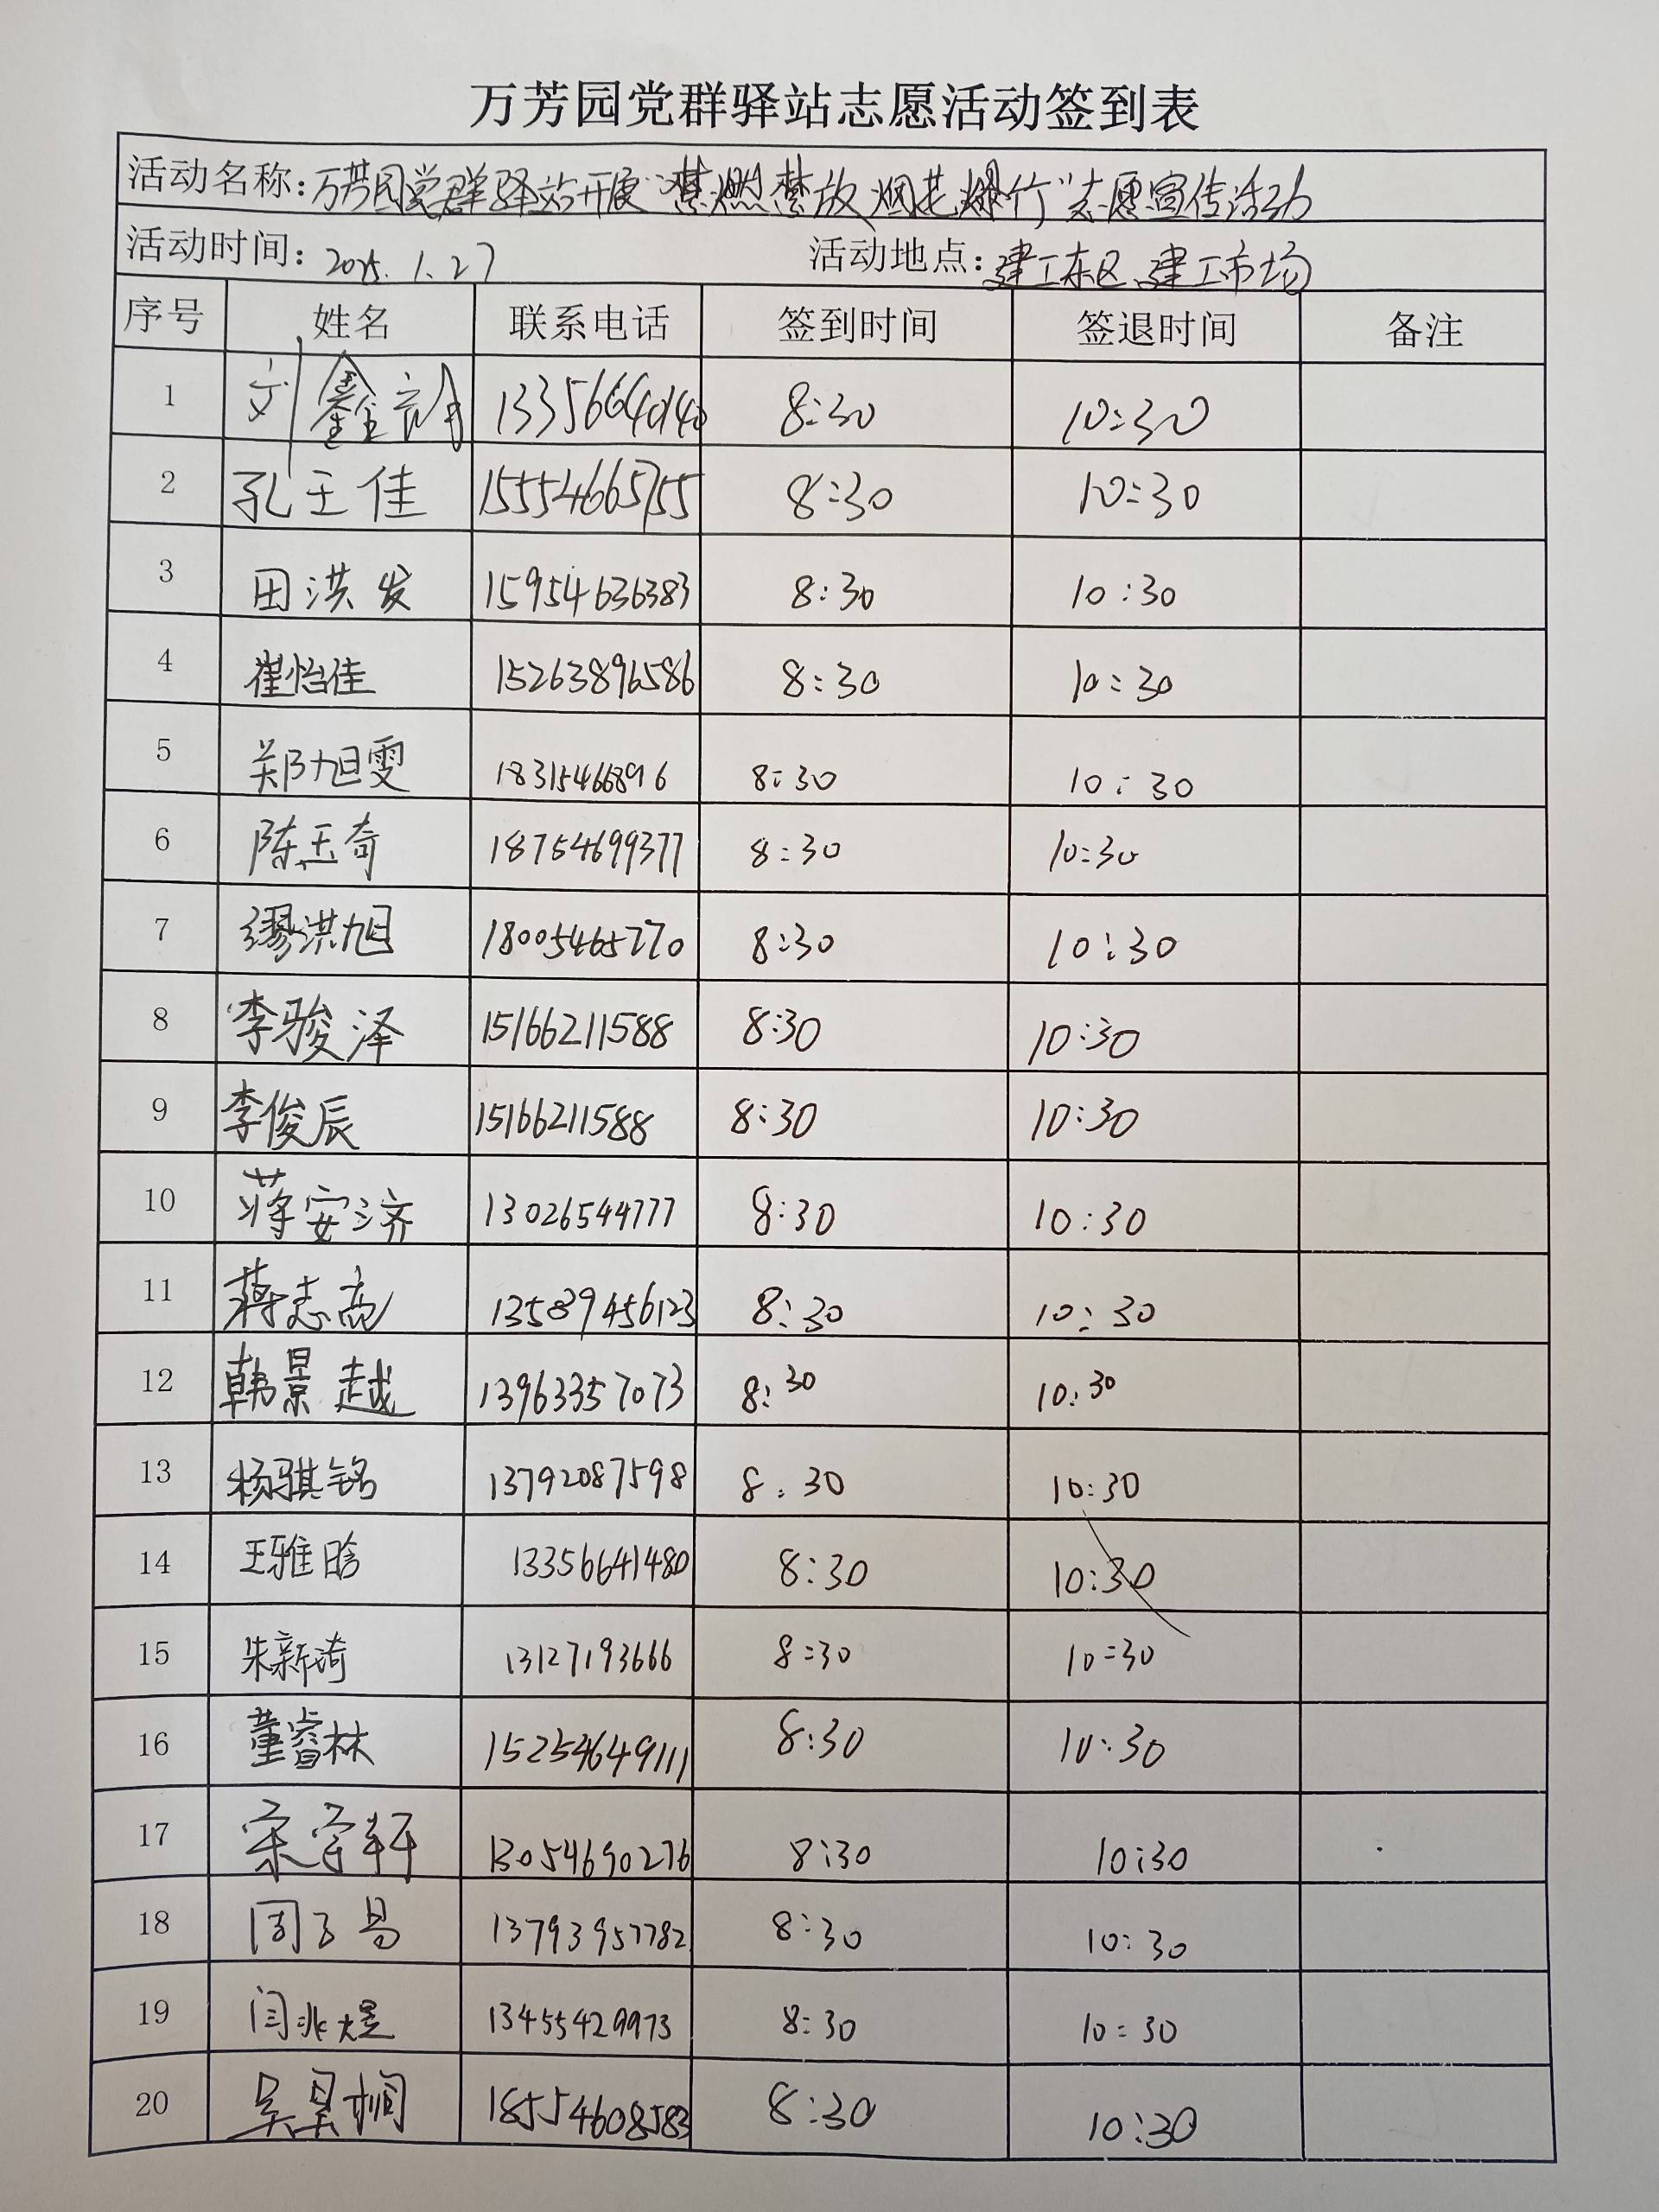 万芳园党群驿站志愿活动签到表
活动名称：万芳园党群驿站开展“禁燃禁放烟花爆竹”志愿宣传活动
活动时间：2025.1.27 活动地点：建工东区、建工市场
序号 姓名 联系电话 签到时间 签退时间 备注
1 刘鑫 13356640140 8:30 10:30
2 孔王佳 15554665755 8:30 10:30
3 田洪发 15954636383 8:30 10:30
4 崔怡佳 15263896586 8:30 10:30
5 郑旭雯 18315466896 8:30 10:30
6 陈玉奇 18754699377 8:30 10:30
7 缪洪旭 18005465770 8:30 10:30
8 李骏泽 15166211588 8:30 10:30
9 李俊辰 15166211588 8:30 10:30
10 蒋安济 13026544777 8:30 10:30
11 蒋志高 13589456123 8:30 10:30
12 韩景越 13963357073 8:30 10:30
13 杨骐铭 13792087598 8:30 10:30
14 王雅晗 13356641480 8:30 10:30
15 朱新琦 13127193666 8:30 10:30
16 董睿林 15254649111 8:30 10:30
17 宋宇轩 13054690276 8:30 10:30
18 周子易 13793957782 8:30 10:30
19 闫兆煜 13455429973 8:30 10:30
20 吴昊桐 18554608583 8:30 10:30